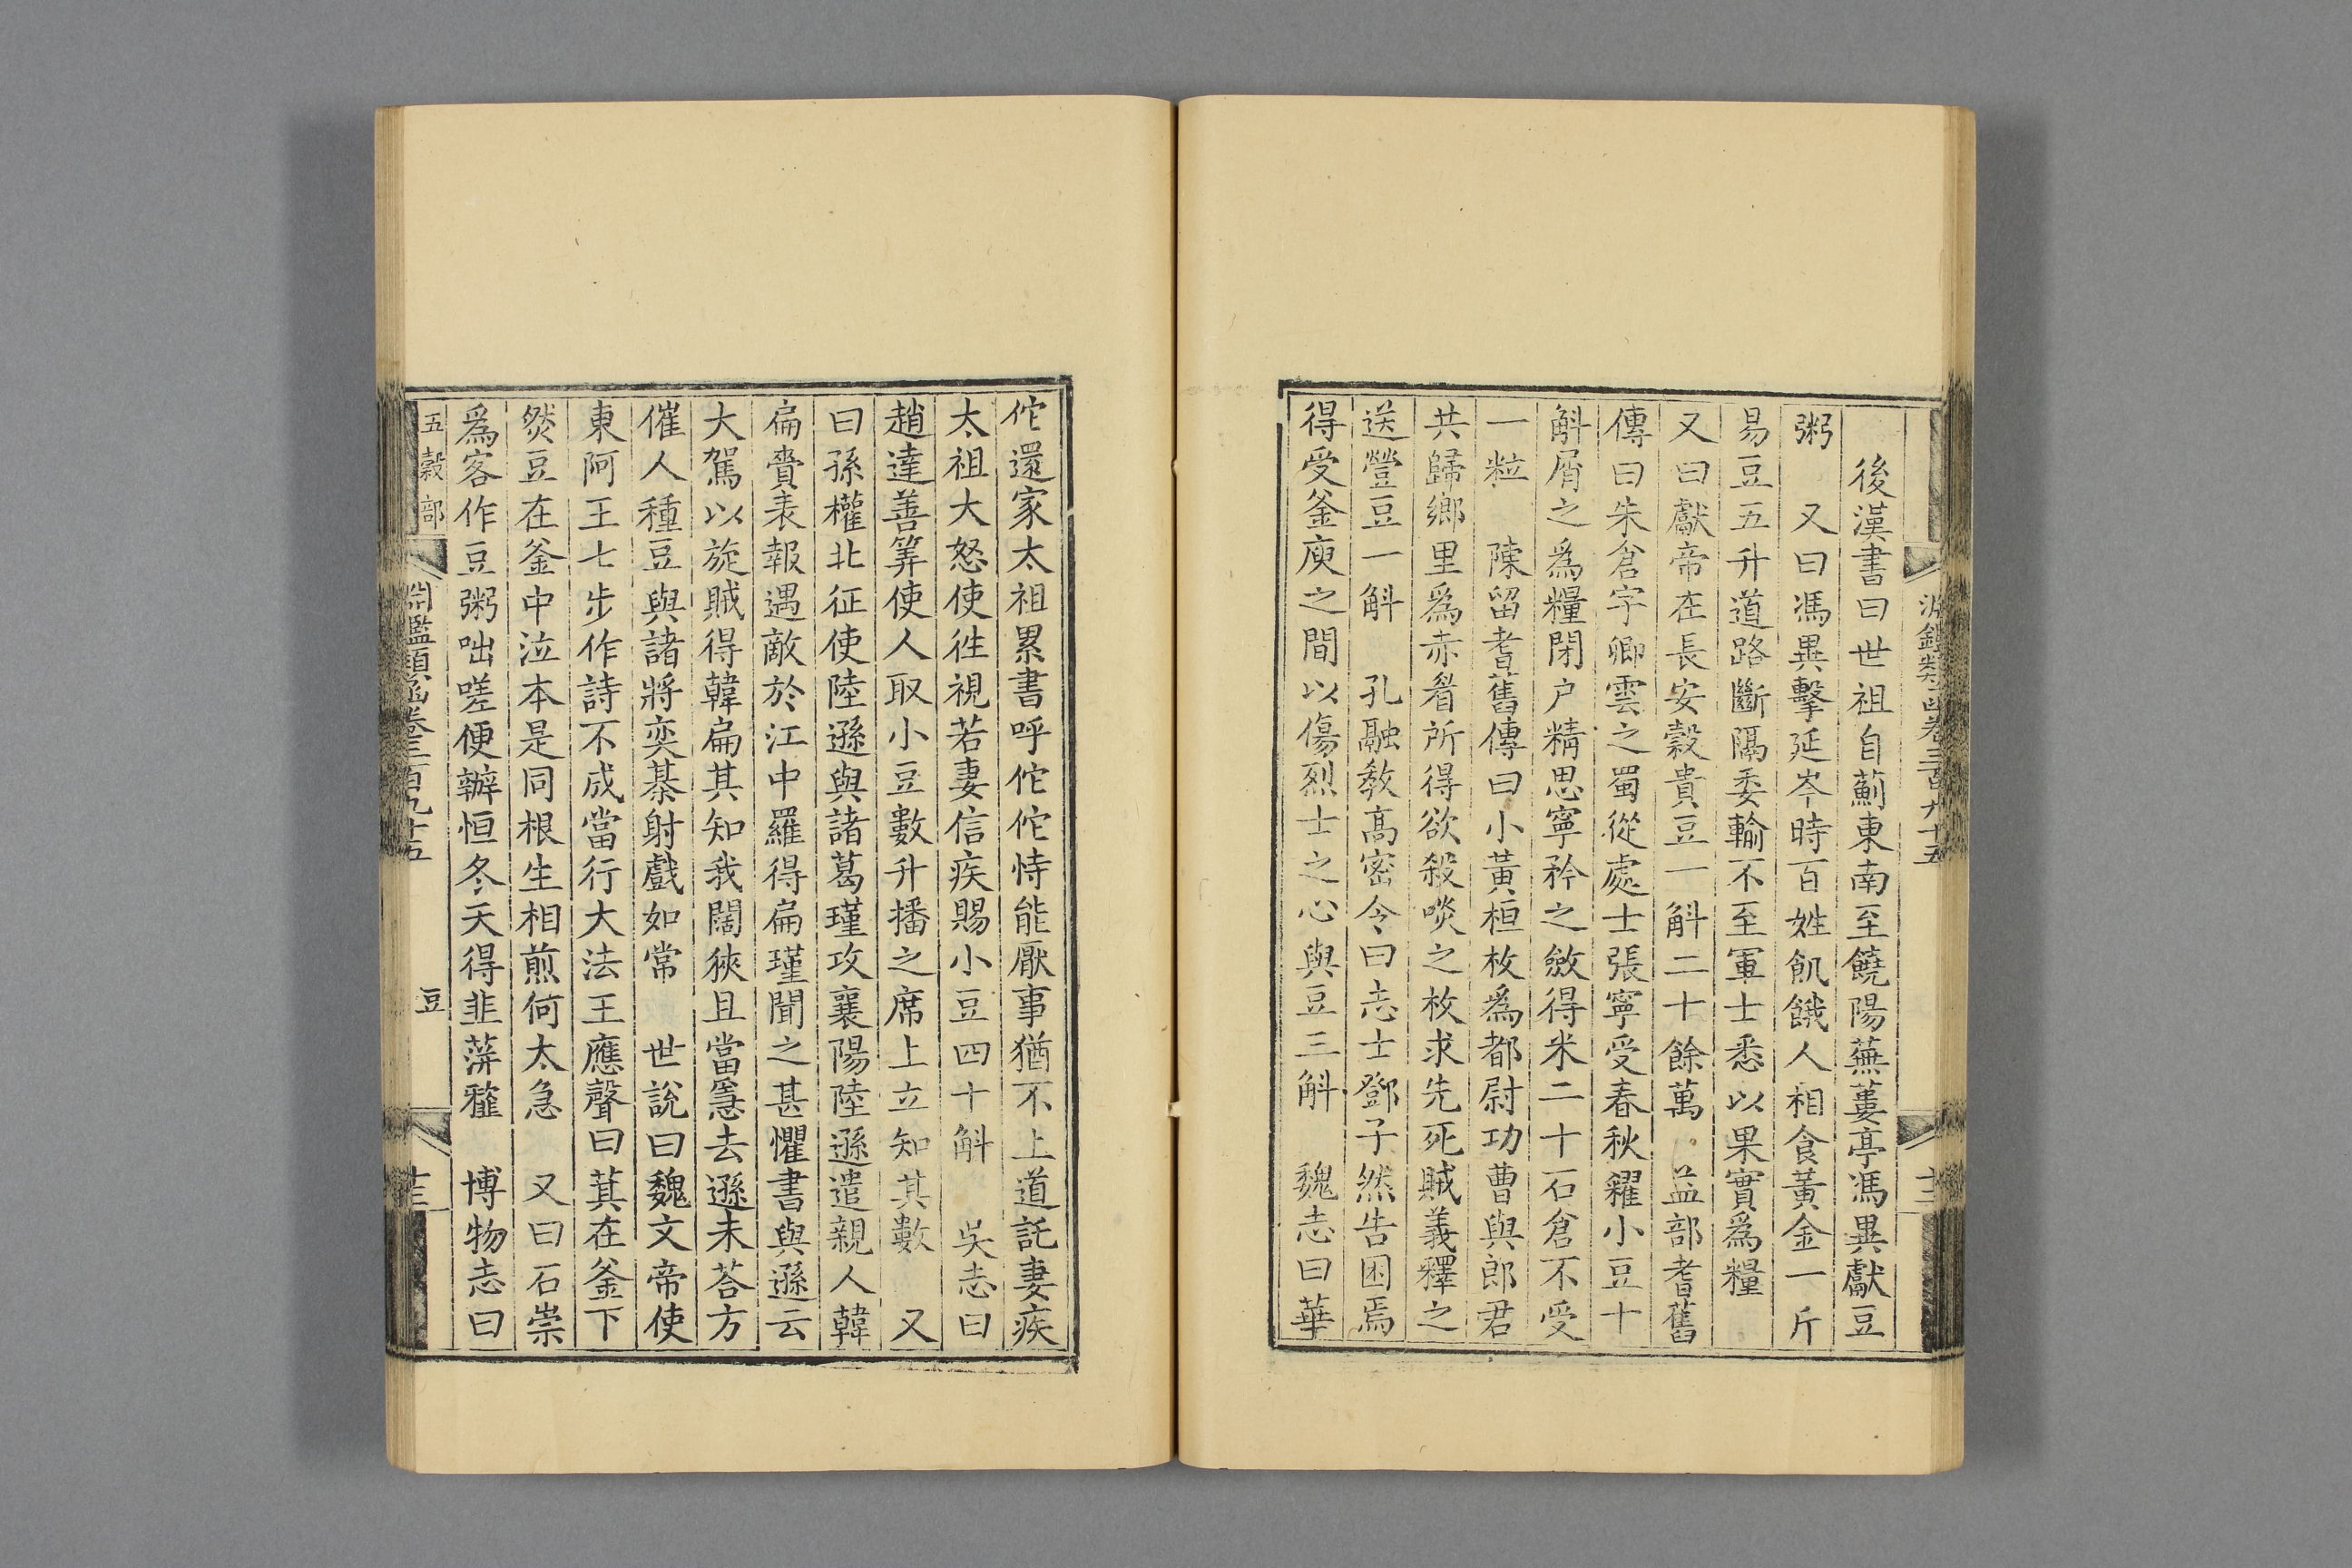 淵鑑類函卷三百九十五
十三
後漢書曰世祖自薊東南至饒陽蕪蔞亭馮異獻豆
粥　又曰馮異擊延岑時百姓飢餓人相食黃金一斤
易豆五升道路斷隔委輸不至軍士悉以果實爲糧
又曰獻帝在長安穀貴豆一斛二十餘萬　益部耆舊
傳曰朱倉字卿雲之蜀從處士張寧受春秋糴小豆十
斛屑之爲糧閉户精思寧矜之斂得米二十石倉不受
一粒　陳留耆舊傳曰小黃桓牧爲都尉功曹與郎君
共歸鄉里爲赤眉所得欲殺啖之牧求先死賊義釋之
送豋豆一斛　孔融教髙密令曰志士鄧子然告困焉
得受釜庾之間以傷烈士之心與豆三斛　魏志曰華
佗還家太祖累書呼佗佗恃能厭事猶不上道託妻疾
太祖大怒使往視若妻信疾賜小豆四十斛　吳志曰
趙達善筭使人取小豆數升播之席上立知其數　又
曰孫權北征使陸遜與諸葛瑾攻襄陽陸遜遣親人韓
扁賫表報遇敵於江中羅得扁瑾聞之甚懼書與遜云
大駕以旋賊得韓扁其知我闊狹且當急去遜未荅方
催人種豆與諸將奕棊射戲如常　世說曰魏文帝使
東阿王七步作詩不成當行大法王應聲曰萁在釜下
燃豆在釜中泣本是同根生相煎何太急　又曰石崇
爲客作豆粥咄嗟便辦恒冬天得韭蓱虀　博物志曰
五穀部
淵鑑類函卷三百九十五
豆
十三